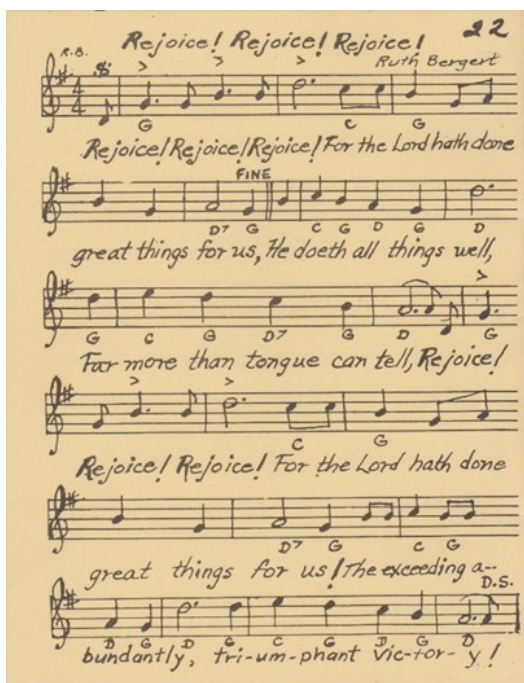 22
Rejoice! Rejoice! Rejoice!
R.B.
Ruth Bergert
4
4
G C G
Rejoice! Rejoice! Rejoice! For the Lord hath done
FINE
D7 G C G D G D
great things for us, He doeth all things well,
G C G D7 G D G
Far more than tongue can tell, Rejoice!
C G
Rejoice! Rejoice! For the Lord hath done
D7 G C G
great things for us! The exceeding a--
D.S.
D G D G C G D G D
bundantly, tri-um-phant vic-tor-y!